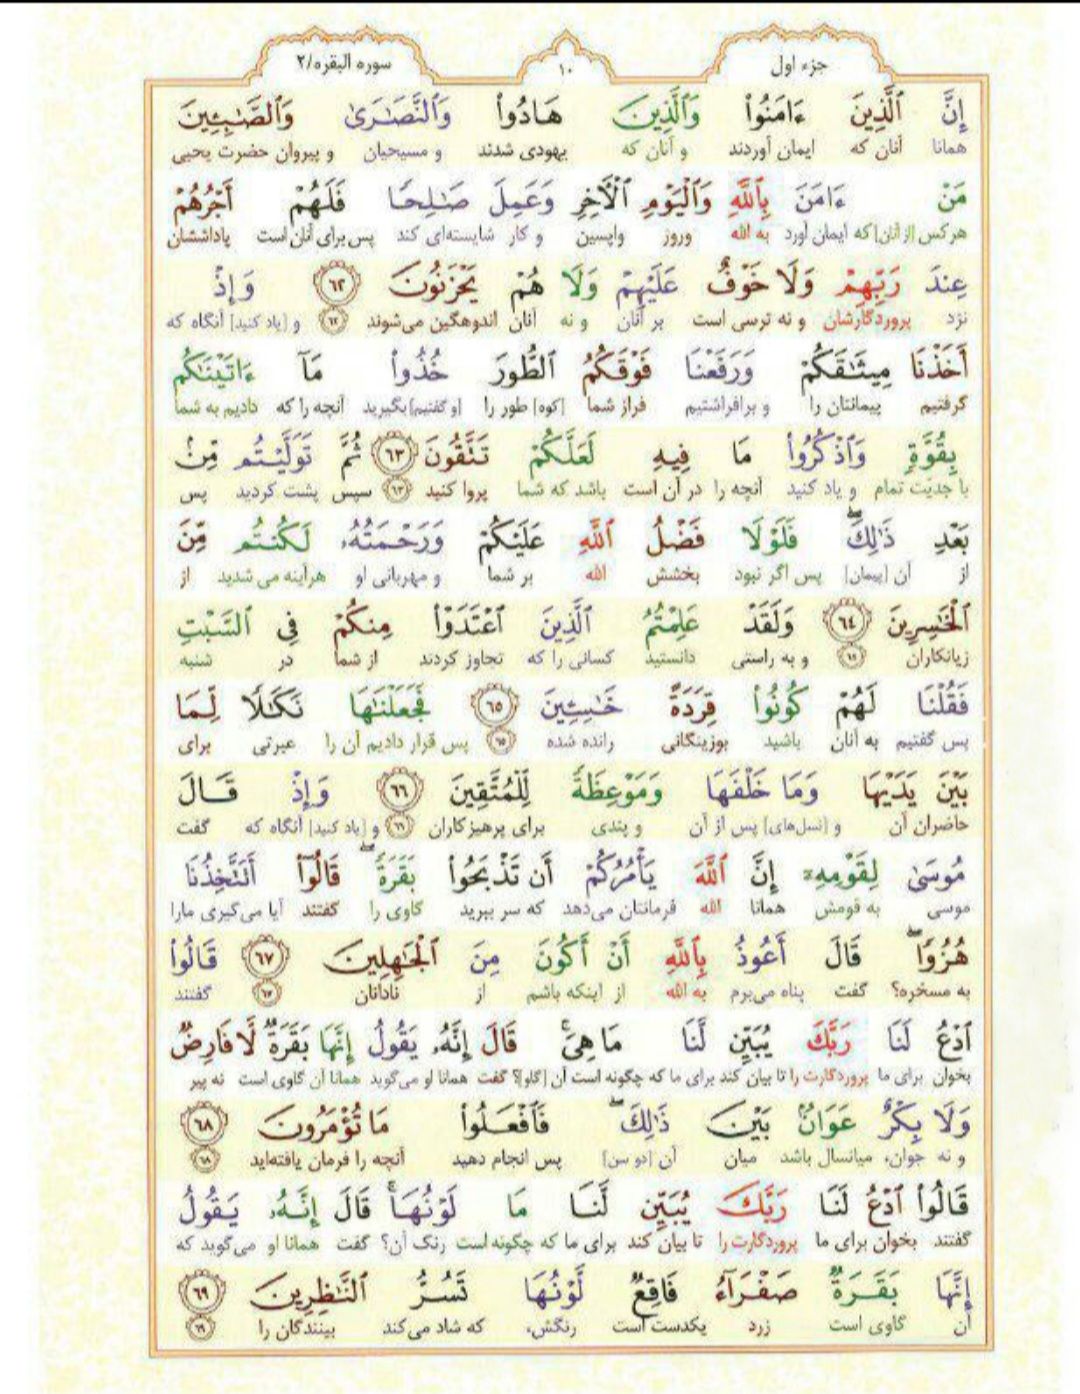 جزء اول
۱۰
سوره البقره/۲
إِنَّ ٱلَّذِينَ ءَامَنُوا۟ وَٱلَّذِينَ هَادُوا۟ وَٱلنَّصَـٰرَىٰ وَٱلصَّـٰبِـِٔينَ
همانا آنان که ایمان آوردند و آنان که یهودی شدند و مسیحیان و پیروان حضرت یحیی
مَنْ ءَامَنَ بِٱللَّهِ وَٱلْيَوْمِ ٱلْـَٔاخِرِ وَعَمِلَ صَـٰلِحًا فَلَهُمْ أَجْرُهُمْ
هرکس [از آنان] که ایمان آورد به الله وروز واپسین و کار شایسته‌ای کند پس برای آنان است پاداششان
عِندَ رَبِّهِمْ وَلَا خَوْفٌ عَلَيْهِمْ وَلَا هُمْ يَحْزَنُونَ ٦٢ وَإِذْ
نزد پروردگارشان و نه ترسی است بر آنان و نه آنان اندوهگین می‌شوند ۶۲ و [یاد کنید] آنگاه که
أَخَذْنَا مِيثَـٰقَكُمْ وَرَفَعْنَا فَوْقَكُمُ ٱلطُّورَ خُذُوا۟ مَآ ءَاتَيْنَـٰكُم
گرفتیم پیمانتان را و برافراشتیم فراز شما [کوه] طور را [و گفتیم] بگیرید آنچه را که دادیم به شما
بِقُوَّةٍ وَٱذْكُرُوا۟ مَا فِيهِ لَعَلَّكُمْ تَتَّقُونَ ٦٣ ثُمَّ تَوَلَّيْتُم مِّنۢ
با جدیّت تمام و یاد کنید آنچه را در آن است باشد که شما پروا کنید ۶۳ سپس پشت کردید پس
بَعْدِ ذَٰلِكَ ۖ فَلَوْلَا فَضْلُ ٱللَّهِ عَلَيْكُمْ وَرَحْمَتُهُۥ لَكُنتُم مِّنَ
از آن [پیمان] پس اگر نبود بخشش الله بر شما و مهربانی او هرآینه می شدید از
ٱلْخَـٰسِرِينَ ٦٤ وَلَقَدْ عَلِمْتُمُ ٱلَّذِينَ ٱعْتَدَوْا۟ مِنكُمْ فِى ٱلسَّبْتِ
زیانکاران ۶۴ و به راستی دانستید کسانی را که تجاوز کردند از شما در شنبه
فَقُلْنَا لَهُمْ كُونُوا۟ قِرَدَةً خَـٰسِـِٔينَ ٦٥ فَجَعَلْنَـٰهَا نَكَـٰلًا لِّمَا
پس گفتیم به آنان باشید بوزینگانی رانده شده ۶۵ پس قرار دادیم آن را عبرتی برای
بَيْنَ يَدَيْهَا وَمَا خَلْفَهَا وَمَوْعِظَةً لِّلْمُتَّقِينَ ٦٦ وَإِذْ قَالَ
حاضران آن و [نسل‌های] پس از آن و پندی برای پرهیزکاران ۶۶ و [یاد کنید] آنگاه که گفت
مُوسَىٰ لِقَوْمِهِۦٓ إِنَّ ٱللَّهَ يَأْمُرُكُمْ أَن تَذْبَحُوا۟ بَقَرَةً ۖ قَالُوٓا۟ أَتَتَّخِذُنَا
موسی به قومش همانا الله فرمانتان می‌دهد که سر ببرید گاوی را گفتند آیا می‌گیری مارا
هُزُوًا ۖ قَالَ أَعُوذُ بِٱللَّهِ أَنْ أَكُونَ مِنَ ٱلْجَـٰهِلِينَ ٦٧ قَالُوا۟
به مسخره؟ گفت پناه می‌برم به الله از اینکه باشم از نادانان ۶۷ گفتند
ٱدْعُ لَنَا رَبَّكَ يُبَيِّن لَّنَا مَا هِىَ ۚ قَالَ إِنَّهُۥ يَقُولُ إِنَّهَا بَقَرَةٌ لَّا فَارِضٌ
بخوان برای ما پروردگارت را تا بیان کند برای ما که چگونه است آن [گاو]؟ گفت همانا او می‌گوید همانا آن گاوی است نه پیر
وَلَا بِكْرٌ عَوَانٌۢ بَيْنَ ذَٰلِكَ ۖ فَٱفْعَلُوا۟ مَا تُؤْمَرُونَ ٦٨
و نه جوان، میانسال باشد میان آن [دو سن] پس انجام دهید آنچه را فرمان یافته‌اید ۶۸
قَالُوا۟ ٱدْعُ لَنَا رَبَّكَ يُبَيِّن لَّنَا مَا لَوْنُهَا ۚ قَالَ إِنَّهُۥ يَقُولُ
گفتند بخوان برای ما پروردگارت را تا بیان کند برای ما که چگونه است رنگ آن؟ گفت همانا او می‌گوید که
إِنَّهَا بَقَرَةٌ صَفْرَآءُ فَاقِعٌ لَّوْنُهَا تَسُرُّ ٱلنَّـٰظِرِينَ ٦٩
آن گاوی است زرد یکدست است رنگش، که شاد می‌کند بینندگان را ۶۹